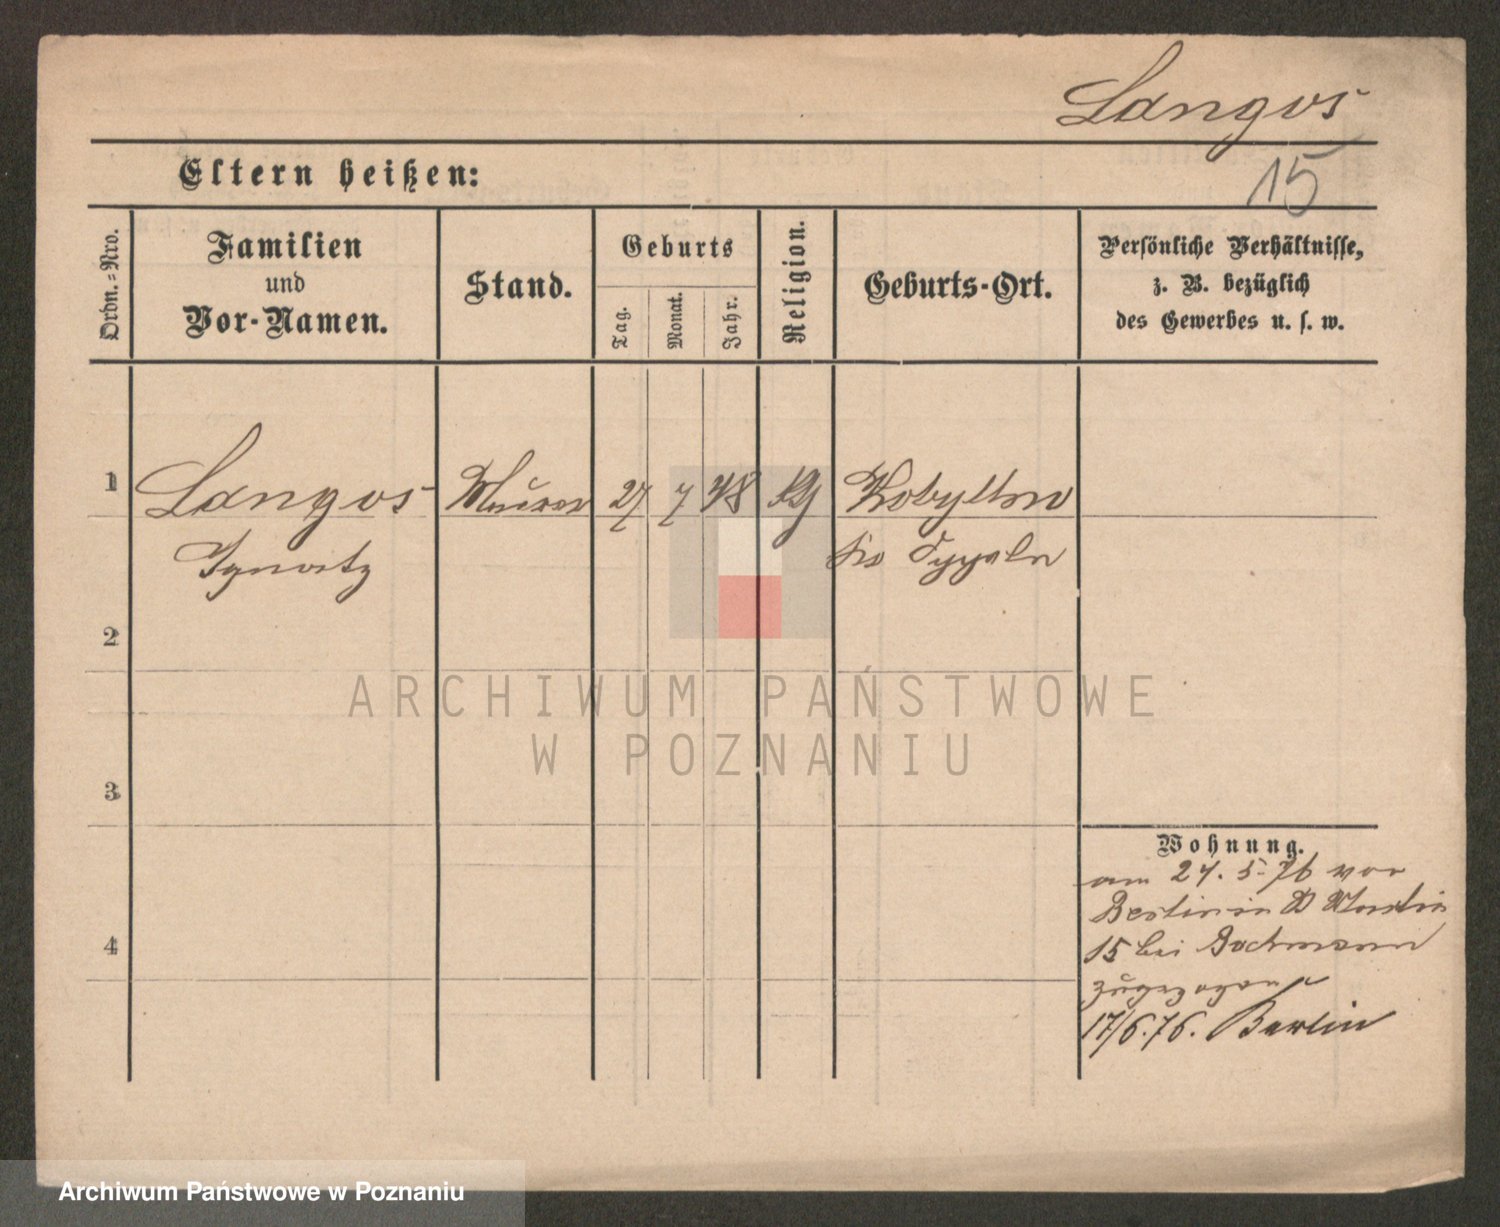 Langos
15
Eltern heißen:
Ordn.-Nro.
Familien
und
Vor-Namen.
Stand.
Geburts
Tag.
Monat.
Jahr.
Religion.
Geburts-Ort.
Persönliche Verhältnisse,
z. B. bezüglich
des Gewerbes u. s. w.
1 Langos Maurer 27 7 48 Kobyllno
Ignatz Krs Oppeln
2
3
4
Wohnung.
am 24. 5. 76 von
Berlin in
15 bei Bochmann
zugezogen
17/6.76. Berlin
ARCHIWUM PAŃSTWOWE
W POZNANIU
Archiwum Państwowe w Poznaniu